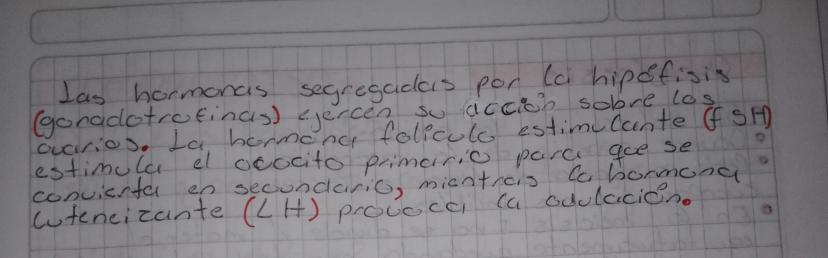 Las hormonas segregadas por la hipófisis
(gonadotrofinas) ejercen su acción sobre los
ovarios. La hormona folículo estimulante (FSH)
estimula el ovocito primario para que se
convierta en secundario, mientras la hormona
luteneizante (LH) provoca la ovulación.